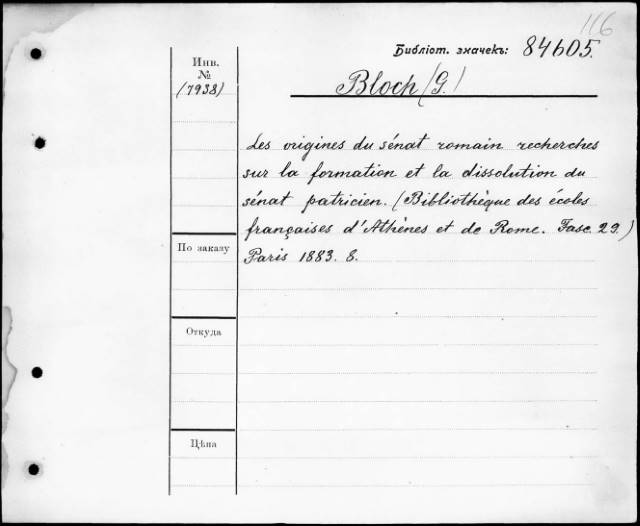 116
Библіот. значекъ: 84605.
Инв.
№
(7938)
Bloch (G.)
Les origines du sénat romain recherches
sur la formation et la dissolution du
sénat patricien. (Bibliothèque des écoles
françaises d'Athènes et de Rome. Fasc. 29.)
Paris 1883. 8.
По заказу
Откуда
Цѣна